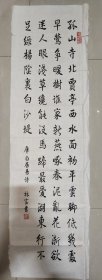 孤山寺北賈亭西水面初平雲腳低幾處
早鶯爭暖樹誰家新燕啄春泥亂花漸欲
迷人眼淺草纔能沒馬蹄最愛湖東行不
足綠楊陰裏白沙堤 唐白居易詩 書